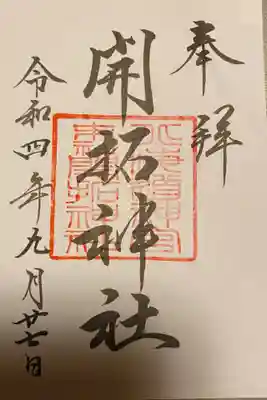 奉拝
開拓神社
令和四年九月廿七日